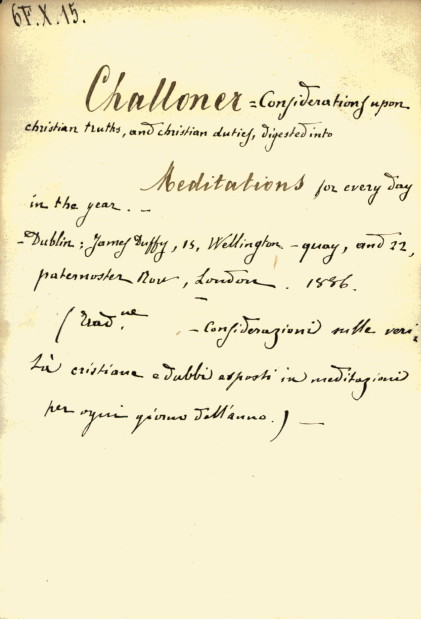 6F.X.15.
Challoner = Considerations upon
christian truths, and christian duties, digested into
Meditations for every day
in the year. -
- Dublin; James Duffy, 15, Wellington - quay, and 22,
paternoster Row, London. 1886.
(Trad.ne - Considerazioni sulle veri-
tà cristiane e dubbi esposti in meditazioni
per ogni giorno dell'anno.) -